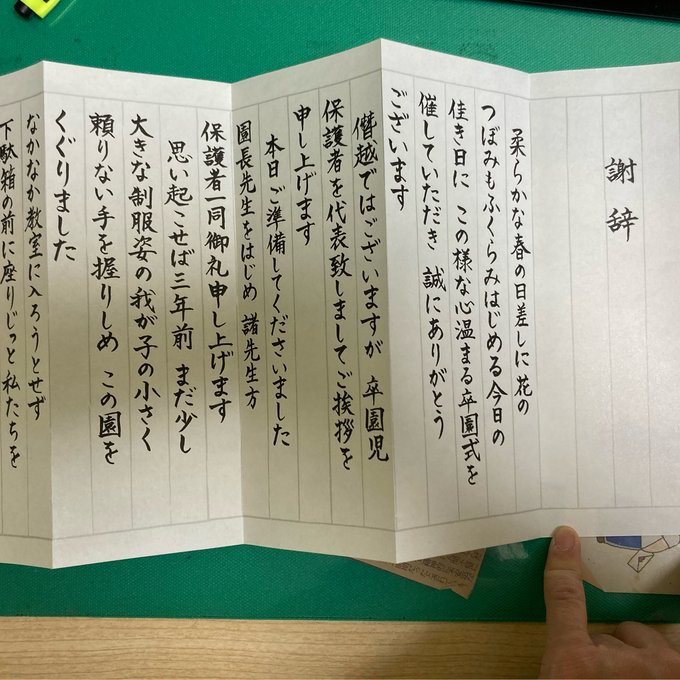 謝辞
柔らかな春の日差しに 花の
つぼみもふくらみはじめる今日の
佳き日に この様な心温まる卒園式を
催していただき 誠にありがとう
ございます
僭越ではございますが 卒園児
保護者を代表致しましてご挨拶を
申し上げます
本日ご準備してくださいました
園長先生をはじめ 諸先生方
保護者一同御礼申し上げます
思い起こせば三年前 まだ少し
大きな制服姿の我が子の小さく
頼りない手を握りしめ この園を
くぐりました
なかなか教室に入ろうとせず
下駄箱の前に座りじっと私たちを